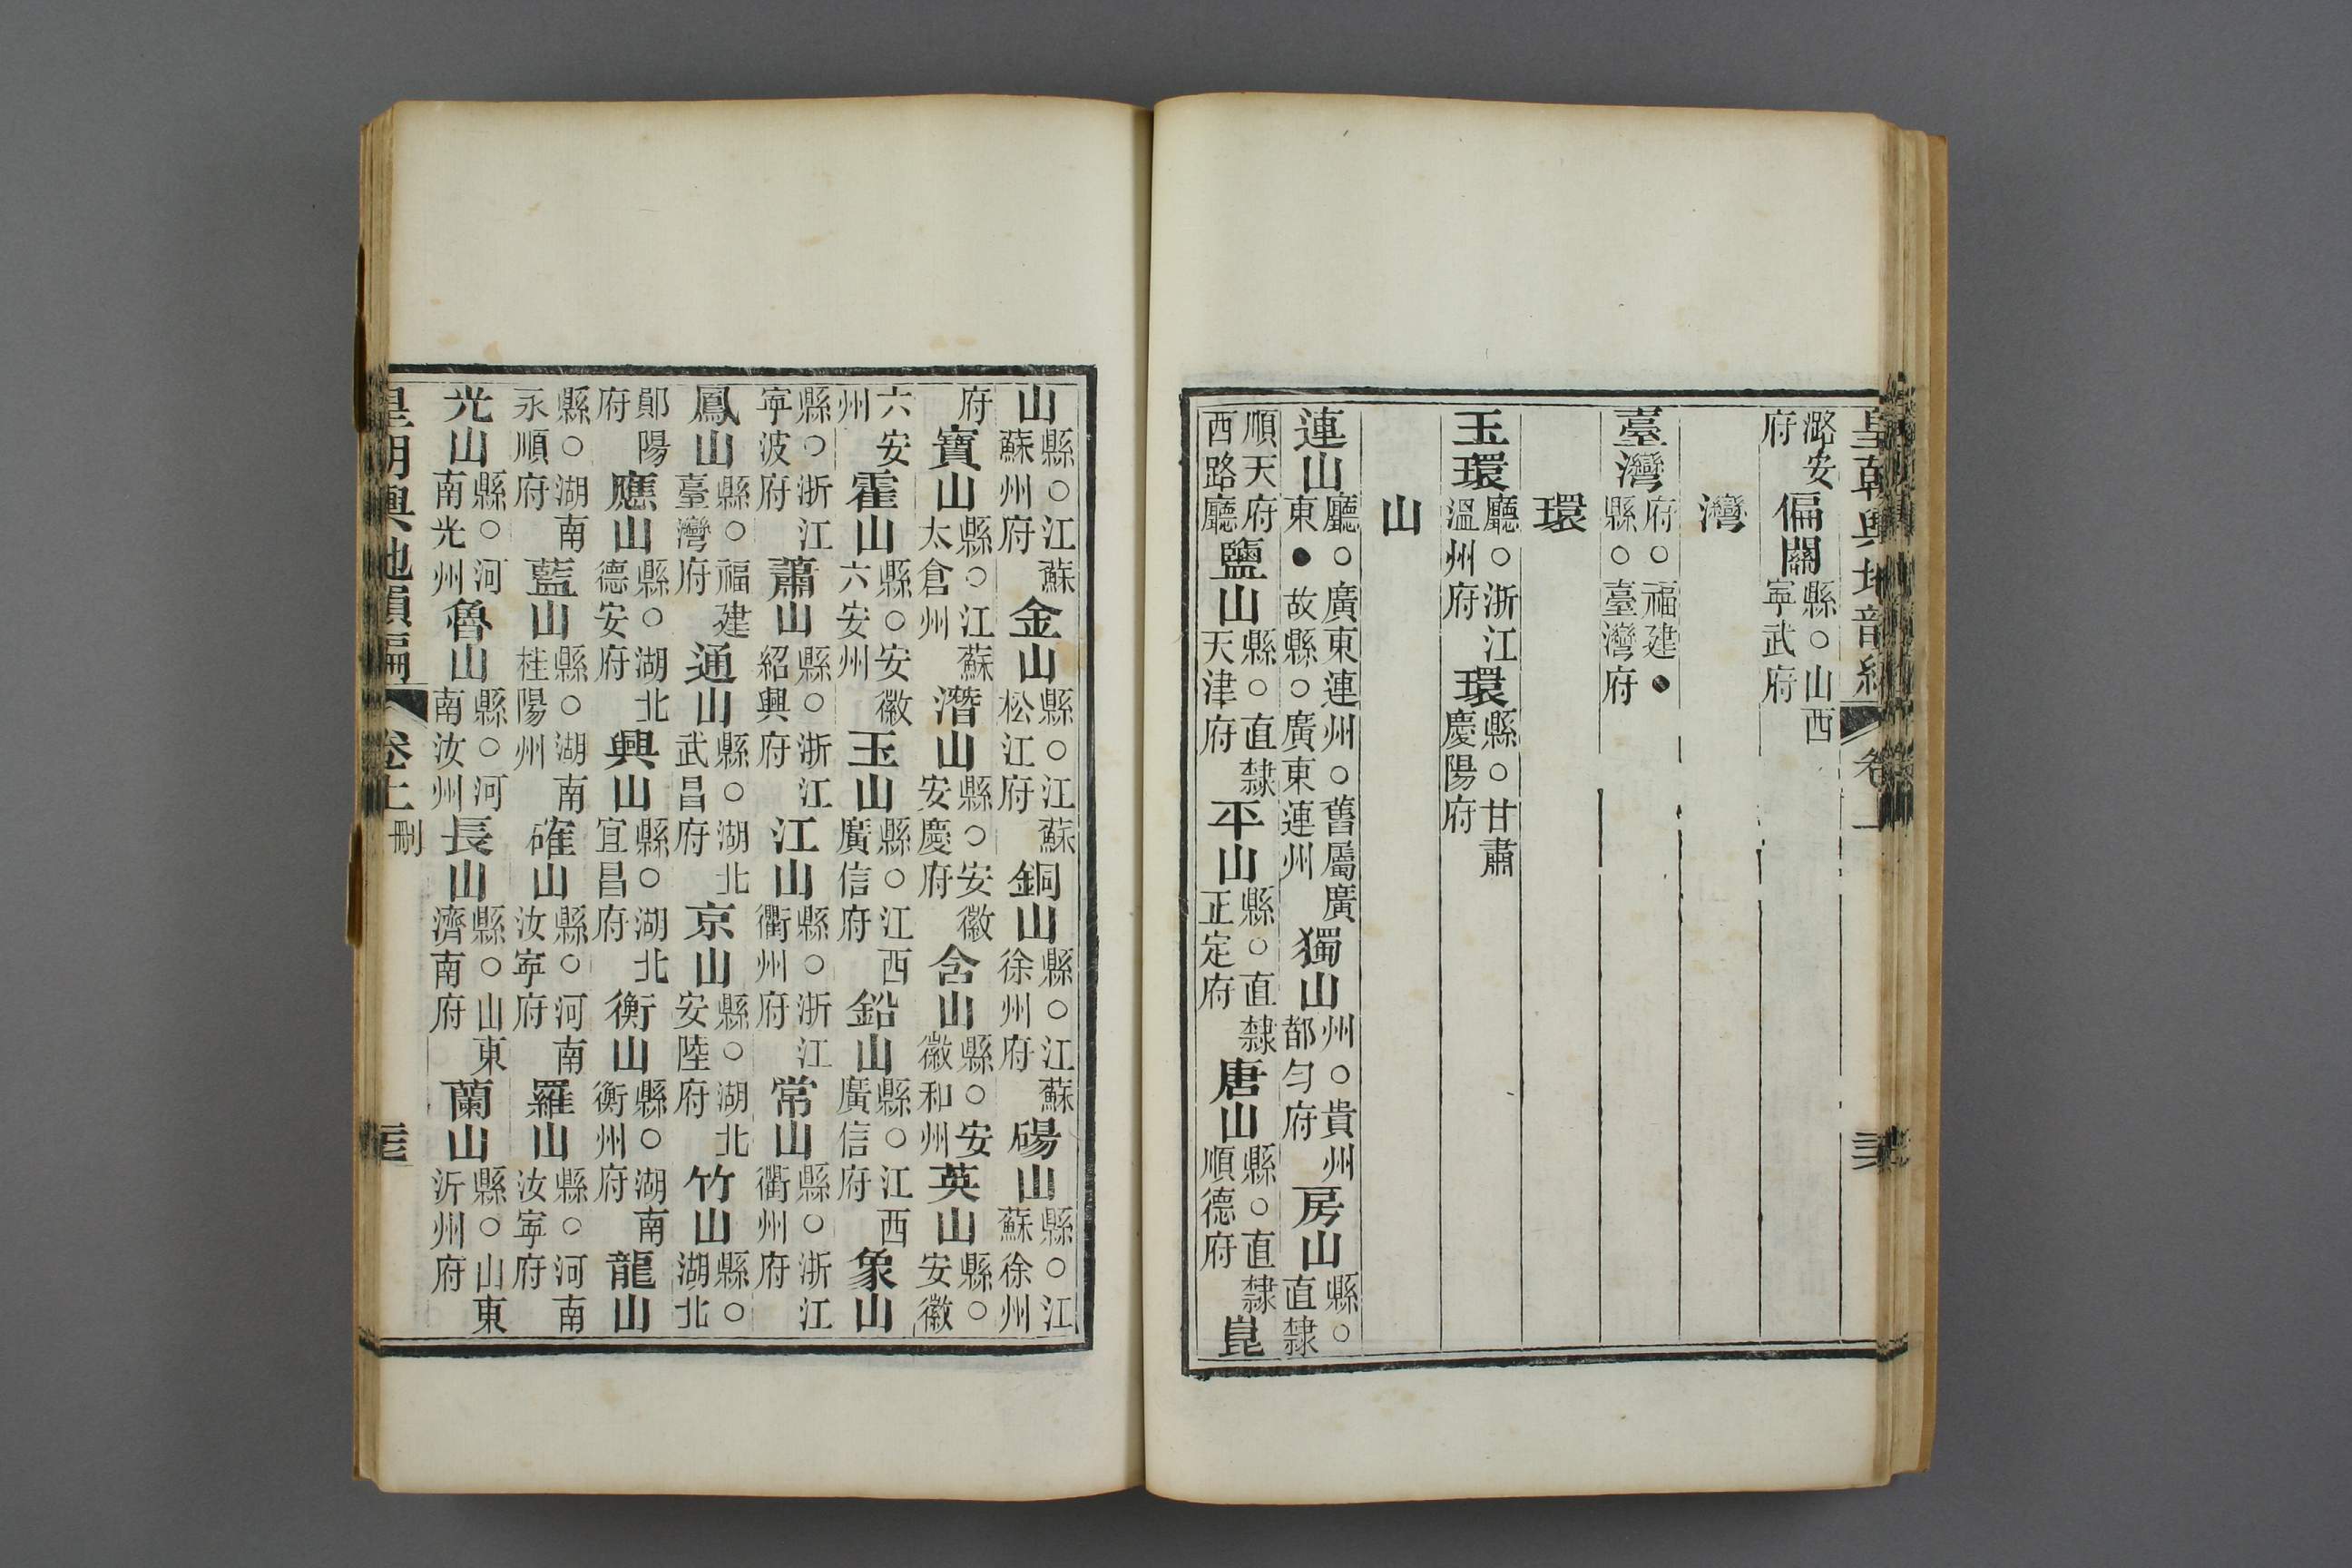 皇朝輿地韻編 卷上
潞安府 偏關縣○山西寧武府
灣
臺灣府○福建●縣○臺灣府
環
玉環廳○浙江溫州府 環縣○甘肅慶陽府
山
連山廳○廣東連州○舊屬廣東●故縣○廣東連州 獨山州○貴州都勻府 房山縣○直隸
順天府西路廳 鹽山縣○直隸天津府 平山縣○直隸正定府 唐山縣○直隸順德府 崑
山縣○江蘇蘇州府 金山縣○江蘇松江府 銅山縣○江蘇徐州府 碭山縣○江蘇徐州
府 寶山縣○江蘇太倉州 潛山縣○安徽安慶府 含山縣○安徽和州 英山縣○安徽
六安州 霍山縣○安徽六安州 玉山縣○江西廣信府 鉛山縣○江西廣信府 象山
縣○浙江寧波府 蕭山縣○浙江紹興府 江山縣○浙江衢州府 常山縣○浙江衢州府
鳳山縣○福建臺灣府 通山縣○湖北武昌府 京山縣○湖北安陸府 竹山縣○湖北
鄖陽府 應山縣○湖北德安府 興山縣○湖北宜昌府 衡山縣○湖南衡州府 龍山
縣○湖南永順府 藍山縣○湖南桂陽州 確山縣○河南汝寧府 羅山縣○河南汝寧府
光山縣○河南光州 魯山縣○河南汝州 長山縣○山東濟南府 蘭山縣○山東沂州府
皇朝輿地韻編 卷上 刪